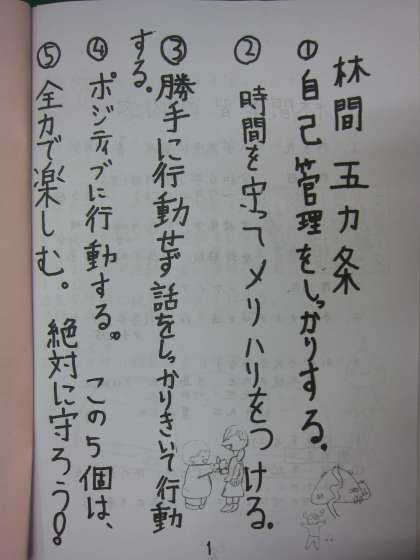 林間 五カ条
① 自己管理をしっかりする。
② 時間を守ってメリハリをつける。
③ 勝手に行動せず話をしっかりきいて行動
する。
④ ポジティブに行動する。
⑤ 全力で楽しむ。
この5個は、
絶対に守ろう!
1